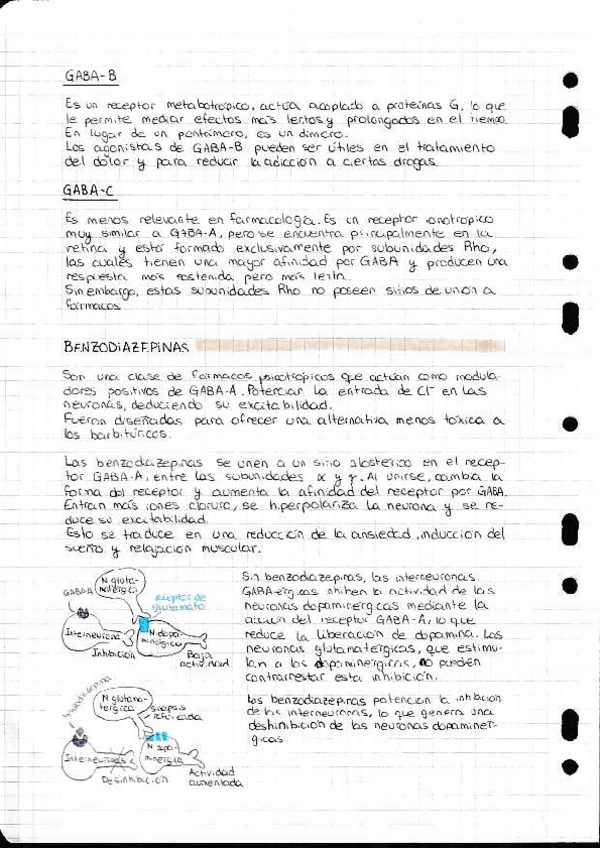 GABA-B
Es un receptor metabotrópico, actúa acoplado a proteínas G, lo que
le permite mediar efectos más lentos y prolongados en el tiempo.
En lugar de un pentámero, es un dímero.
Los agonistas de GABA-B pueden ser útiles en el tratamiento
del dolor y para reducir la adicción a ciertas drogas.
GABA-C
Es menos relevante en farmacología. Es un receptor ionotrópico
muy similar a GABA-A, pero se encuentra principalmente en la
retina y estar formado exclusivamente por subunidades Rho,
las cuales tienen una mayor afinidad por GABA y producen una
respuesta más sostenida pero más lenta.
Sin embargo, estas subunidades Rho no poseen sitios de unión a
fármacos
BENZODIAZEPINAS
Son una clase de fármacos psicotrópicos que actúan como modula-
dores positivos de GABA-A. Potencian la entrada de Cl⁻ en las
neuronas, deduciendo su excitabilidad.
Fueron diseñadas para ofrecer una alternativa menos tóxica a
los barbitúricos.
Las benzodiazepinas se unen a un sitio alostérico en el recep-
tor GABA-A, entre las subunidades α y γ. Al unirse, cambia la
forma del receptor y aumenta la afinidad del receptor por GABA.
Entran más iones cloruro, se hiperpolariza la neurona y se re-
duce su excitabilidad.
Esto se traduce en una reducción de la ansiedad, inducción del
sueño y relajación muscular.
N. gluta-
matérgica
GABA-A
receptor de
glutamato
Interneurona
N. dopa-
minérgica
Inhibición
Baja
actividad
Sin benzodiazepinas, las interneuronas
GABA-érgicas inhiben la actividad de las
neuronas dopaminérgicas mediante la
acción del receptor GABA-A, lo que
reduce la liberación de dopamina. Las
neuronas glutamatérgicas, que estimu-
lan a las dopaminérgicas, no pueden
contrarrestar esta inhibición.
N. gluta-
térgica
sinapsis
Interneurona
N. dopa-
minérgica
Desinhibición
Actividad
aumentada
Las benzodiazepinas potencian la inhibición
de las interneuronas, lo que genera una
deshinibición de las neuronas dopaminér-
gicas.